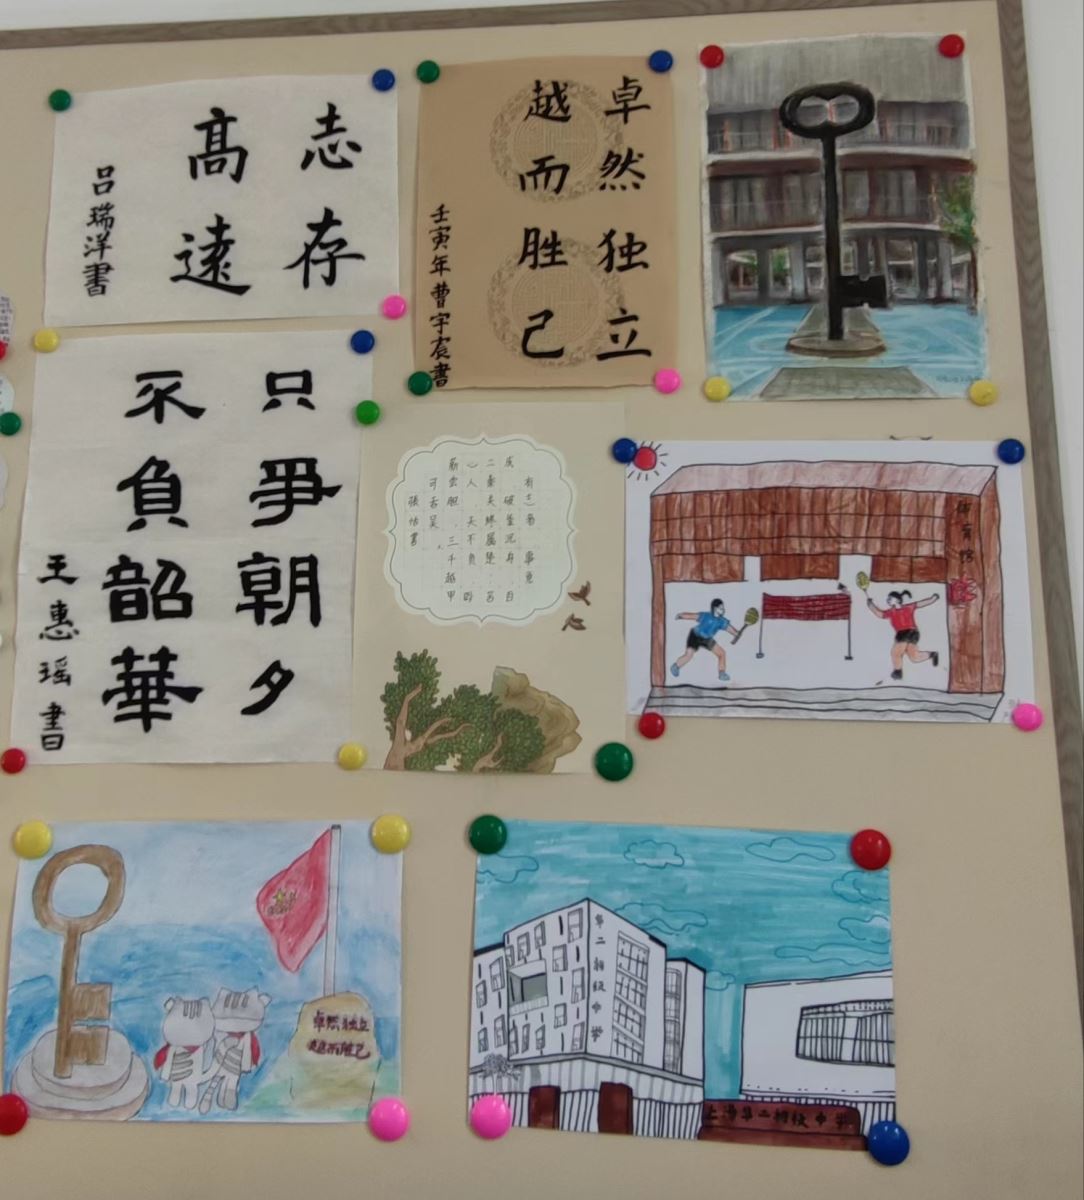 志存
高遠
吕瑞洋書
卓然独立
越而胜己
壬寅年曹宇宸書
只爭朝夕
不負韶華
王惠瑶書
有志者 事竟
成 破釜沉舟 百
二秦关终属楚 苦
心人 天不负 卧
薪尝胆 三千越甲
可吞吴
張怡書
体育馆
卓然独立
越而胜己
第二初级中学
上海第二初级中学